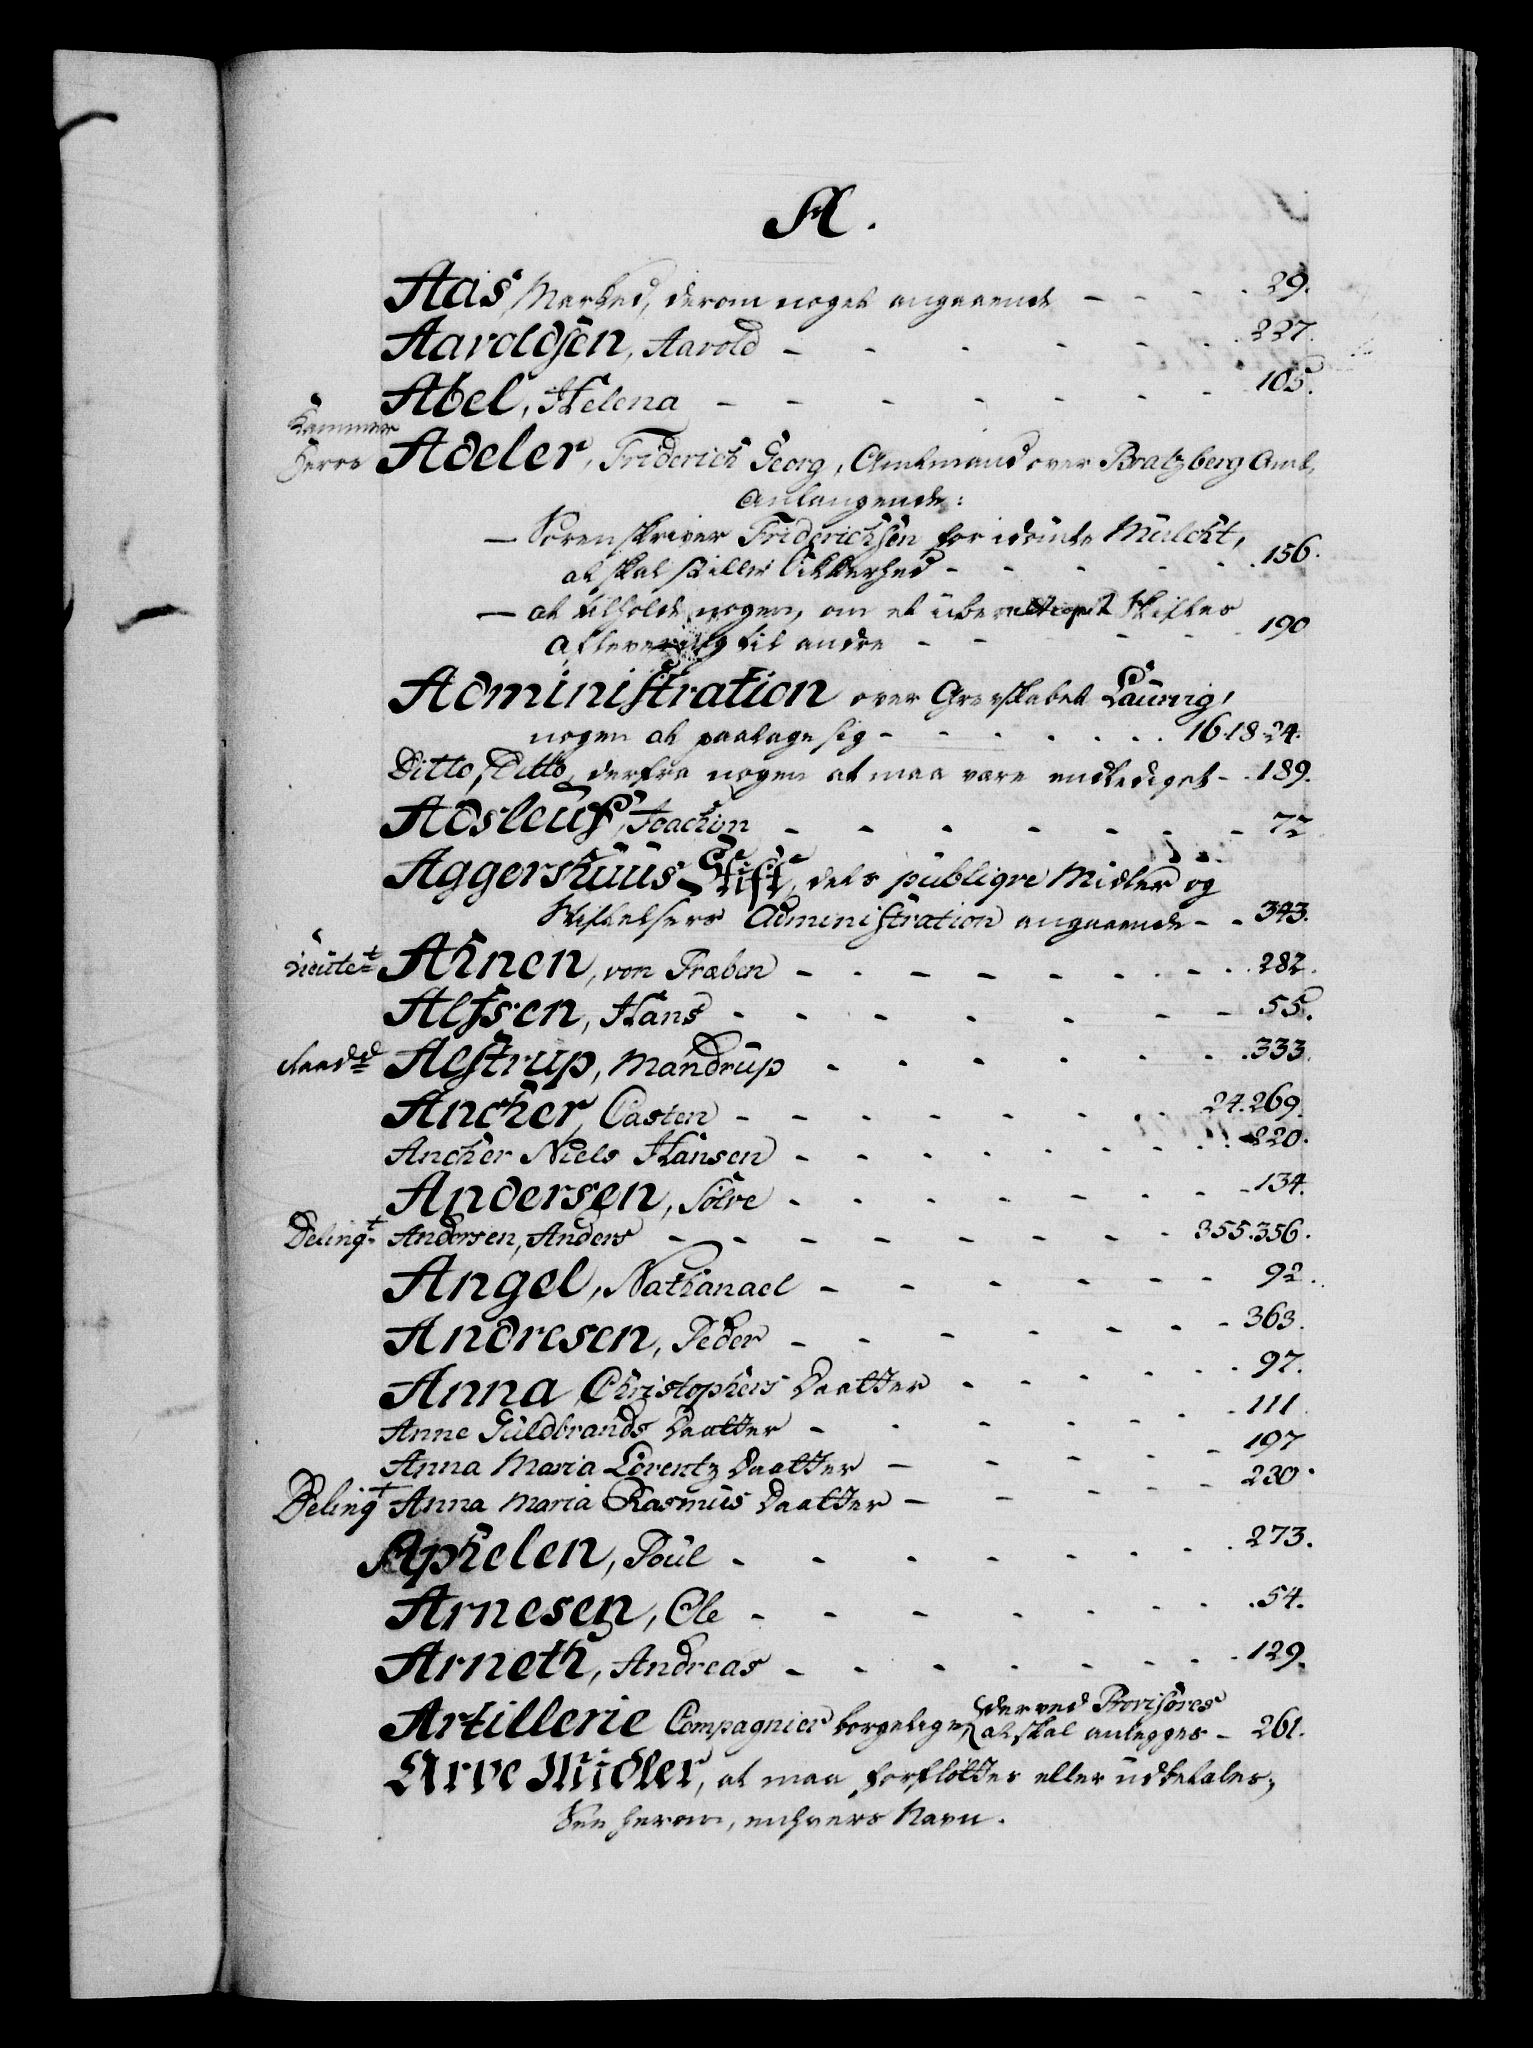 A.
Aas Marked, derom noget angaaende - - - 29.
Aaroldsen, Aarold - - - - - - 227.
Abel, Helena - - - - - - - 105.
Kammer
Herre Adeler, Friderich Georg, Amtmand over Bratzberg Amt,
anlangende:
— Sorenskriver Friderichsen for idømte Mulcht,
at skal stille Sikkerhed - - - - - 156.
— at tilholde nogen, om et Skiftes
aflevering til andre - - - - - 190
Administration over Grevskabet Laurvig,
nogen at paatage sig - - - - - - 16.18.24.
Ditto, Ditto, derfra nogen at maa være entlediget - 189.
Adsleuf, Joachim - - - - - - - 72
Aggershuus Stift, dets publiqve Midler og
Stiftelsers Administration angaaende - - 343.
Lieutet Ahnen, von Præben - - - - - - - 282.
Alfsen, Hans - - - - - - - 55.
Raadd Alstrup, Mandrup - - - - - - 333.
Ancher, Casten - - - - - - - 24.269.
Ancher Niels Hansen - - - - - - - 220.
Andersen, Sølve - - - - - - - 134.
Delinqt Andersen, Anders - - - - - - - 355.356.
Angel, Nathanael - - - - - - 92.
Andresen, Peder - - - - - - - 363.
Anna Christophers Daatter - - - - - 97.
Anne Guldbrands Daatter - - - - - - 111.
Anna Maria Lorentz Daatter - - - - - 197
Delinqt Anna Maria Rasmus Daatter - - - - - 230.
Aphelen, Poul - - - - - - - 273.
Arnesen, Ole - - - - - - - 54.
Arneth, Andreas - - - - - - - 129.
Artillerie Compagnier borgelige, derved Provisores
at skal anlegges - 261.
Arve Midler, at maa forflöttes eller udbetales,
See herom, enhvers Navn.